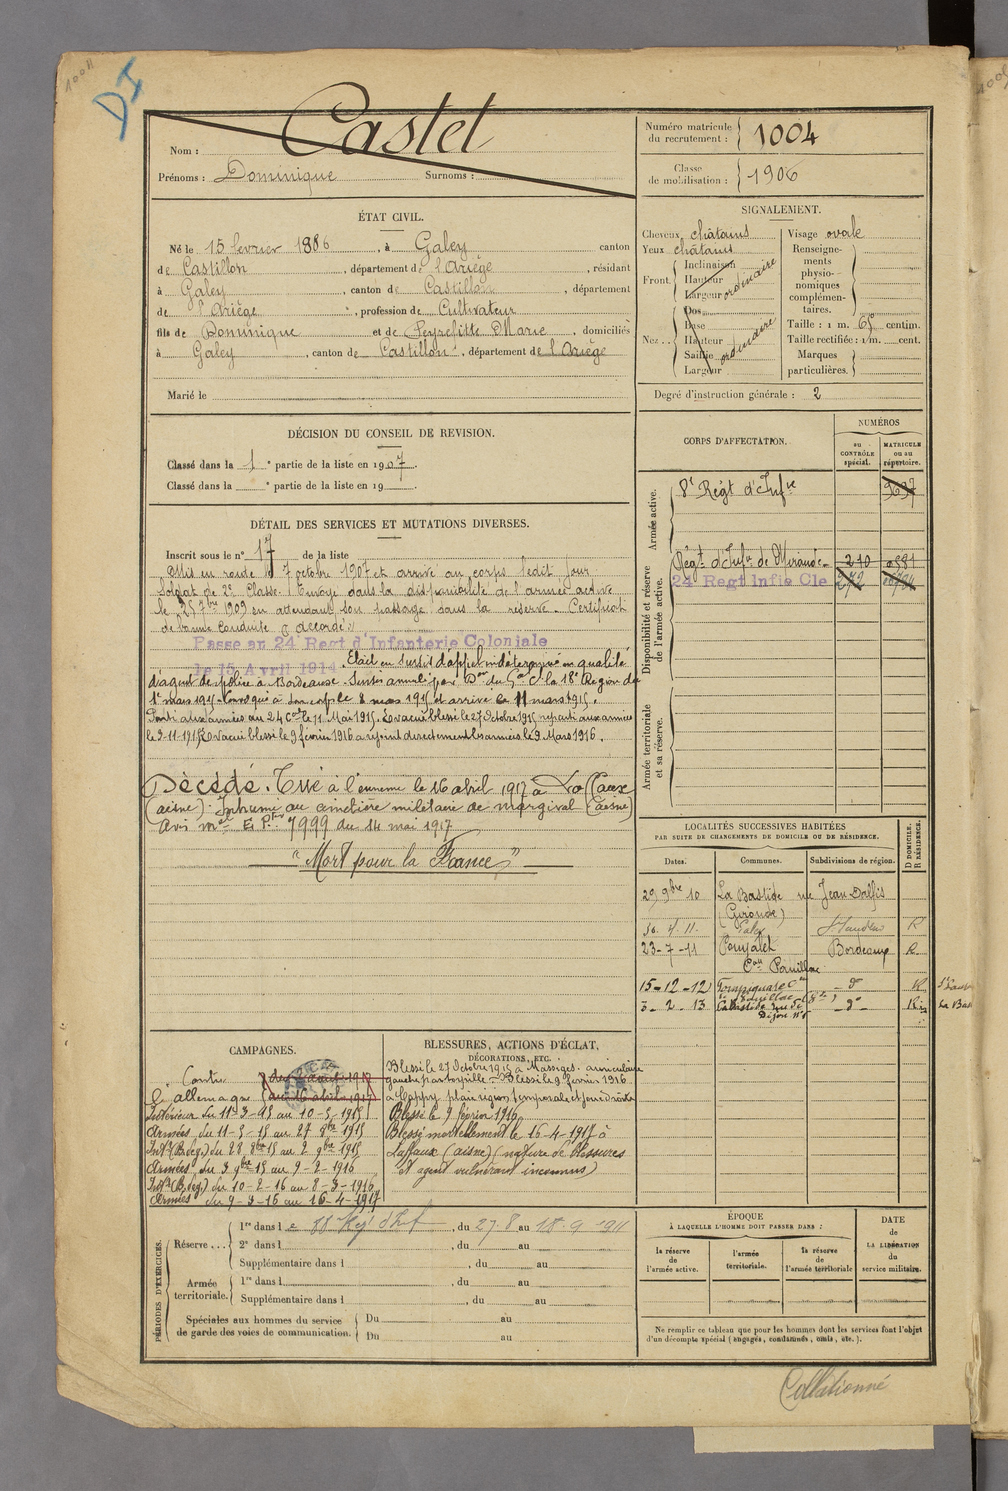 1004
DI
Nom : Castet
Prénoms : Dominique Surnoms :
Numéro matricule du recrutement : 1004
Classe de mobilisation : 1906
ÉTAT CIVIL.
Né le 15 février 1886, à Galey canton
de Castillon, département de l'Ariège, résidant
à Galey, canton de Castillon, département
de l'Ariège, profession de Cultivateur
fils de Dominique et de Peyrefitte Marie, domiciliés
à Galey, canton de Castillon, département de l'Ariège
Marié le
SIGNALEMENT.
Cheveux châtains
Yeux châtains
Front Inclinaison Hauteur Largeur ordinaire
Nez Dos Base Hauteur Saillie Largeur ordinaire
Visage ovale
Renseignements physionomiques complémentaires.
Taille : 1 m. 65 centim.
Taille rectifiée : 1 m. cent.
Marques particulières.
Degré d'instruction générale : 2
DÉCISION DU CONSEIL DE REVISION.
Classé dans la 1e partie de la liste en 1907.
Classé dans la e partie de la liste en 19
DÉTAIL DES SERVICES ET MUTATIONS DIVERSES.
Inscrit sous le n° 17 de la liste
Mis en route le 7 octobre 1907 et arrivé au corps ledit jour
Soldat de 2e classe. Envoyé dans la disponibilité de l'armée active
le 25 7bre 1909 en attendant son passage dans la réserve. Certificat
de bonne conduite accordé
Passé au 24 Regt d'Infanterie Coloniale
le 15 Avril 1914. Etait en sursis d'appel indéterminé en qualité
d'agent de police à Bordeaux. Sursis annulé par Don du Gal Ct la 18e Région du
1er mars 1915. Convoqué à son corps le 8 mars 1915 et arrivé le 11 mars 1915.
Parti aux armées au 24 Cal le 11 Mai 1915. Evacué blessé le 27 Octobre 1915 reparti aux armées
le 3-11-1915 Evacué blessé le 9 février 1916 a rejoint directement les armées le 9 Mars 1916.
Décédé. Tué à l'ennemi le 16 avril 1917 à Laffaux
(aisne). Inhumé au cimetière militaire de margival (aisne)
Avis mel E. P. 7999 du 14 mai 1917
"Mort pour la France"
CORPS D'AFFECTATION.
NUMÉROS
au CONTRÔLE spécial.
MATRICULE ou au répertoire.
Armée active.
8e Régt d'Infie 9637
Disponibilité et réserve de l'armée active.
Régt d'Infie de Mirande 210 0581
24 Regt Infie Cle 272
Armée territoriale et sa réserve.
LOCALITÉS SUCCESSIVES HABITÉES
PAR SUITE DE CHANGEMENTS DE DOMICILE OU DE RÉSIDENCE.
Dates. Communes. Subdivisions de région. D DOMICILE. R RÉSIDENCE.
29 9bre 10 La Bastide rue Jean Dalfis
(Gironde)
Galey St Gaudens R
23-7-11 Pouyalet Bordeaux R
Con Pauillac
15-12-12 - d° R
3-2-13 Labastide rue de Dijon n° - d° - R
CAMPAGNES.
Contre
l'allemagne du 16 avril 1917
Intérieur du 11-3-15 au 10-5-1915
Armées du 11-5-15 au 27 8bre 1915
Intr (B. deg.) du 28 8bre 15 au 2 9bre 1915
Armées du 3 9bre 15 au 9-2-1916
Intr (B. deg.) du 10-2-16 au 8-3-1916
Armées du 9-3-16 au 16-4-1917
BLESSURES, ACTIONS D'ÉCLAT,
DÉCORATIONS, ETC.
Blessé le 27 Octobre 1915 à Massiges. auriculaire
gauche par torpille - Blessé le 9 février 1916
à Cappy plaie région temporale et joue droite
Blessé le 9 février 1916
Blessé mortellement le 16-4-1917 à
Laffaux (aisne) (nature de blessures
et agent vulnérant inconnus)
PÉRIODES D'EXERCICES.
Réserve 1re dans l e 88 Régt d'Inf, du 27.8 au 18-9-1911
2e dans l, du au
Supplémentaire dans l, du au
Armée territoriale. 1re dans l, du au
Supplémentaire dans l, du au
Spéciales aux hommes du service de garde des voies de communication. Du au
Du au
ÉPOQUE
À LAQUELLE L'HOMME DOIT PASSER DANS :
la réserve de l'armée active.
l'armée territoriale.
la réserve de l'armée territoriale
DATE de LA LIBÉRATION du service militaire.
Ne remplir ce tableau que pour les hommes dont les services font l'objet
d'un décompte spécial (engagés, condamnés, omis, etc.).
Collationné